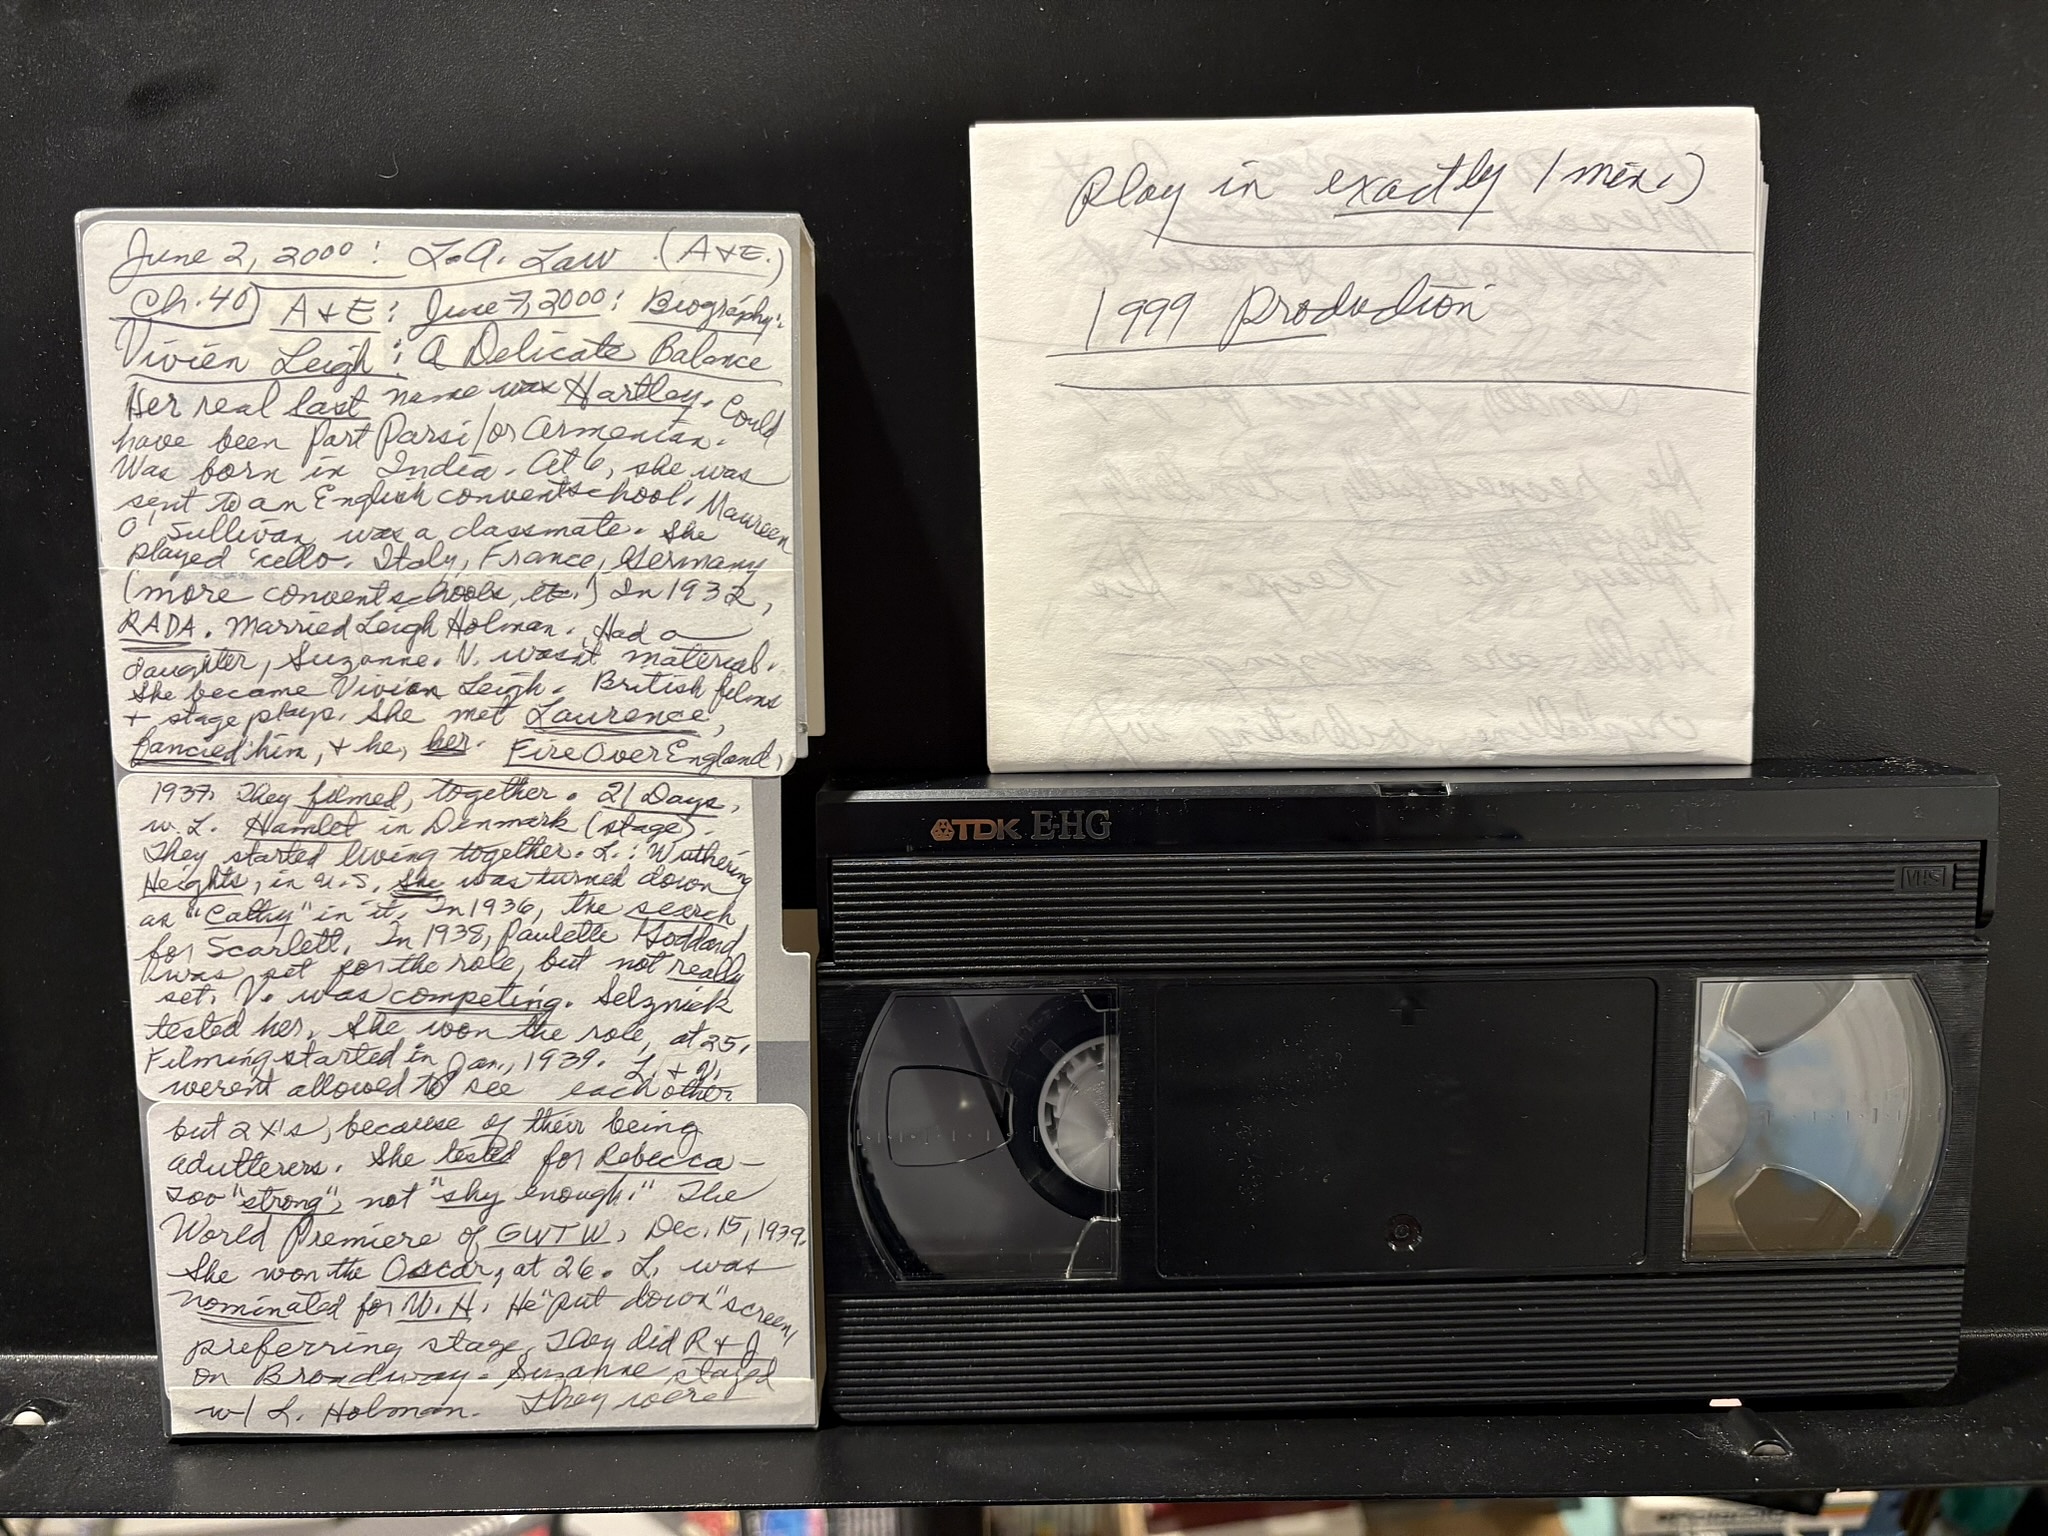 June 2, 2000: L.A. Law (A&E.)
Ch. 40) A & E: June 7, 2000: Biography:
Vivien Leigh: A Delicate Balance
Her real last name was Hartley. Could
have been Part Parsi/or Armenian.
Was born in India. At 6, she was
sent to an English convent school. Maureen
O'Sullivan was a classmate. She
played 'cello. Italy, France, Germany
(more convent schools, etc.) In 1932,
RADA. Married Leigh Holman. Had a
daughter, Suzanne. V. wasn't material.
She became Vivian Leigh. British films
+ stage plays. She met Laurence,
fancied him, + he, her. Fire Over England,
1937. They filmed, together. 21 Days,
w. L. Hamlet in Denmark (stage).
They started living together. L.: Wuthering
Heights, in U.S. She was turned down
as "Cathy" in it. In 1936, the search
for Scarlett. In 1938, Paulette Goddard
was set for the role, but not really
set. V. was competing. Selznick
tested her. She won the role, at 25.
Filming started in Jan., 1939. L. + V.
weren't allowed to see each other
but 2 x's, because of their being
adulterers. She tested for Rebecca –
too "strong", not "shy enough." The
World Premiere of GWTW, Dec. 15, 1939.
She won the Oscar, at 26. L. was
nominated for W.H. He "put down" screen,
preferring stage. They did R & J
on Broadway. Suzanne stayed
w/ L. Holman. They were
Play in exactly 1 min.)
1999 Production
TDK E-HG
VHS